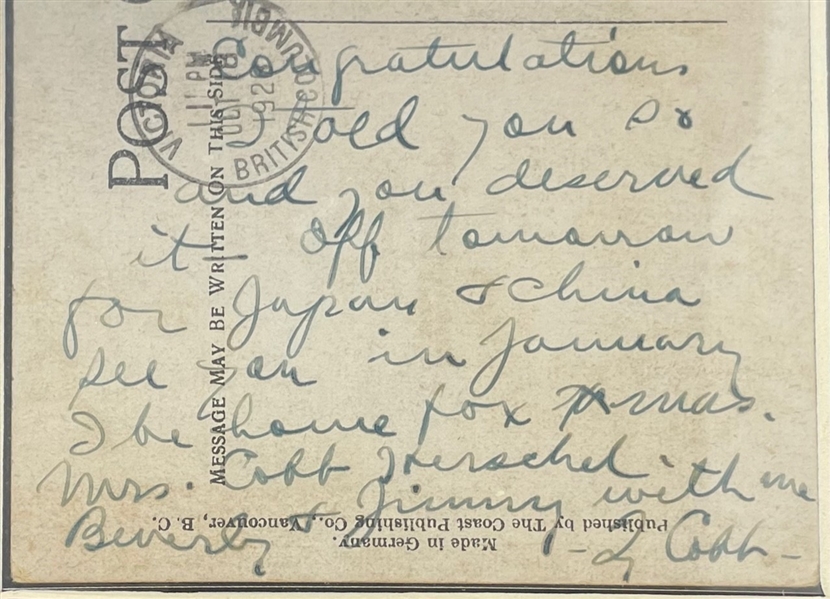 Congratulations
I told you so
and you deserved
it - Off tomorrow
for Japan & China
see you in January
I be home for Xmas.
Mrs. Cobb Herschel with me
Beverly & Jimmy
- Ty Cobb -
POST
MESSAGE MAY BE WRITTEN ON THIS SIDE
VICTORIA
11 PM
OCT 18
192
BRITISH COLUMBIA
Published by The Coast Publishing Co., Vancouver, B. C.
Made in Germany.